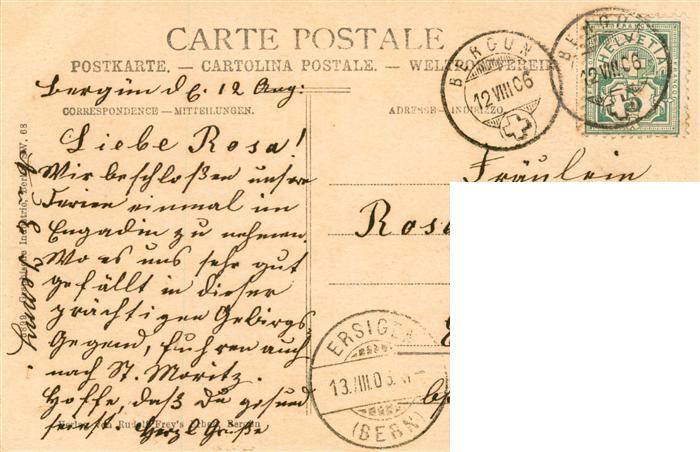 CARTE POSTALE
POSTKARTE. — CARTOLINA POSTALE. — WELTPOSTVEREIN
Bergün d. 12 Aug:
CORRESPONDENCE — MITTEILUNGEN.
ADRESSE — INDIRIZZO
BERGÜN
12.VIII.06
BERGÜN
12.VIII.06
HELVETIA
FRANCO
5
Liebe Rosa!
Wir beschloßen unsere
Ferien einmal im
Engadin zu nehmen.
Wo es uns sehr gut
gefällt in dieser
prächtigen Gebirgs
Gegend, fuhren auch
nach St. Moritz.
Hoffe, daß Du gesund
seiest. Herzl Grüße
Fräulein
Rosa
ERSIGEN
13.VIII.06
(BERN)
Verlag von Rudolf Frey's Erben, Bergün